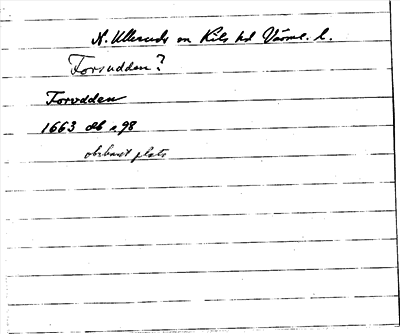 N. Ulleruds sn Kils hd Värml. l.
Forsudden?
Forudden
1663 db s 98
obebauet plats